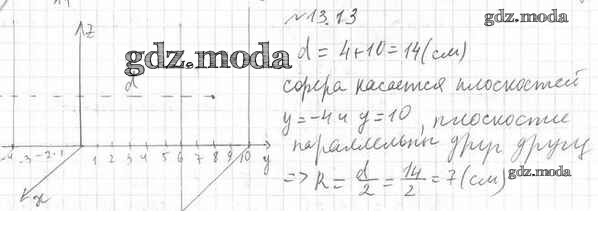 №13.13
gdz.moda
z
d = 4+10=14(см)
gdz.moda
d
сфера касается плоскостей
y=-4 и y=10, плоскости
параллельны друг другу
-4 -3 -2 -1 1 2 3 4 5 6 7 8 9 10 y
=> R = d/2 = 14/2 = 7 (см)
gdz.moda
x